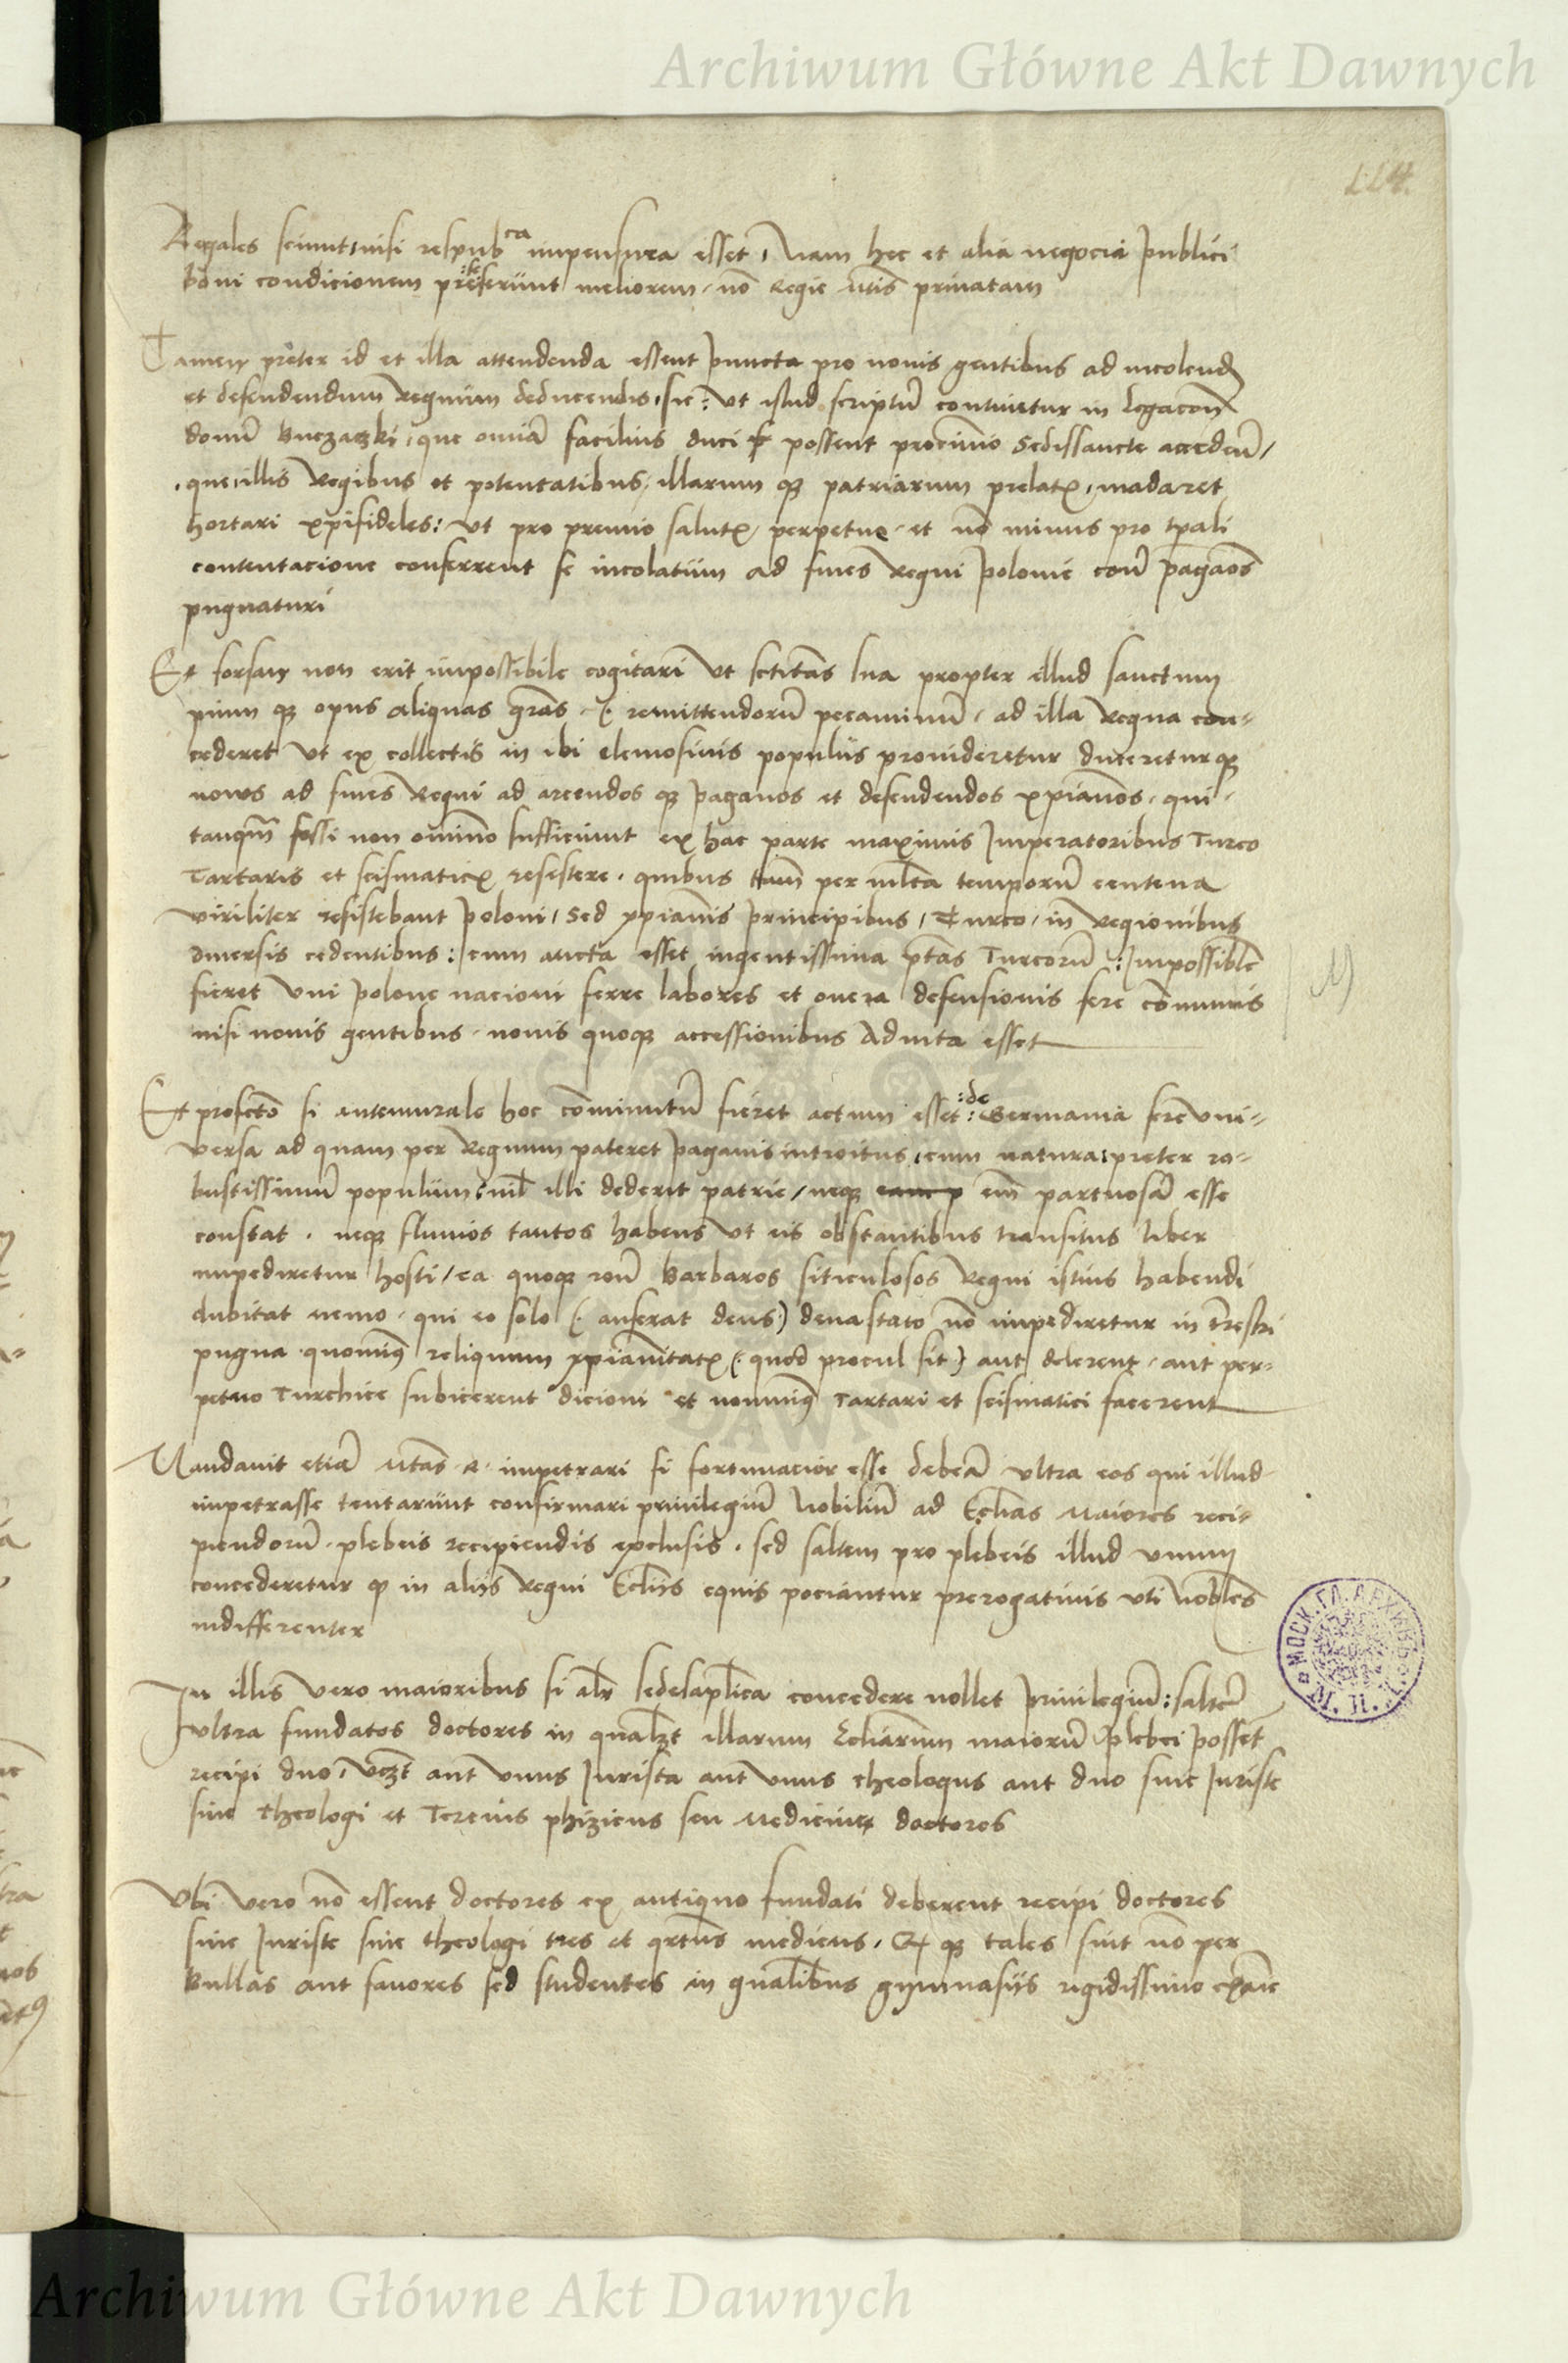 Archiwum Główne Akt Dawnych
114.
Regales sciunt, nisi respub^ca impensura esset, Nam hec et alia negocia publici
boni condicionem preferunt meliorem, nō Regie Mtis priuatam
Tamen preter id et illa attendenda essent puncta pro nouis gentibus ad incolend
et defendendum Regnum deducendis, sic: vt istud scriptū continetur in legacon
domī Buczaczki, que omīa facilius duci possent procinnio Sedissancte accedeñ,
que, illis Regibus et potentatibus, illarum qʒ patriarum prelatꝭ, mādaret
hortari xpifideles: vt pro premio salutꝭ, perpetue, et nō minus pro tpali
contentacione conferrent se incolatum ad fines Regni Polonie conī pagāos
pugnaturi
Et forsan non erit impossibile cogitari vt sctitas sua propter illud sanctum
pium qʒ opus aliquas grās (: remittendorū pecaminū, ad illa Regna con-
cederet vt ex collectis in ibi elemosinis populus prouideretur duceretur qʒ
nouus ad fines Regni ad arcendos qʒ paganos et defendendos xpianos, qui,
tanqm̄ fessi non omīno sufficiunt ex hac parte maximis Imperatoribus Turco
Tartaris et scismaticꝭ resistere, quibus tam̄ per ml̄ta temporū centena
viriliter resistebant Poloni, Sed xpianis principibus, Turco, in Regionibus
diuersis cedentibus: cum aucta esset ingentissima ptās Turcorū: Impossible
fieret vni Polone nacioni ferre labores et onera defensionis fere cōmunis
nisi nouis gentibus, nouis quoqʒ accessionibus adiuta esset
Et profecto si antemurale hoc cōminutū fieret actum esset :de: Germania fere vni-
versa ad quam per Regnum pateret paganis introitus, cum natura, preter ro-
bustissimū populum, nil illi dederit patrie, neqʒ em̄ partuosā esse
constat, neqʒ fluuios tantos habens vt eis obstantibus transitus liber
impediretur hosti, ea quoqʒ Barbaros siticulosos Regni istius habendi
dubitat nemo, qui eo solo (: auferat deus:) deuastato nō impediretur in trestri
pugna quominꝰ reliquum xpianitatꝭ (: quod procul sit) aut delerent, aut per-
petuo Turchice subicerent dicioni et nominꝰ Tartari et scismatici facerent
Mandauit etiā Mtas R. impetrari si fortunacior esse debeā vltra eos qui illud
impetrasse tentarunt confirmari priuilegiū Nobiliū ad Ecclias maiores reci-
piendorū, plebeis recipiendis exclusis, sed saltem pro plebeis illud vnum
concederetur qʒ in aliis Regni Ecliis equis pociantur prerogatiuis vti Nobles
indifferenter
In illis vero maioribus si alr sedesaplica concedere nollet priuilegiū: saltē
vltra fundatos doctores in qualʒt illarum Ecliarum maiorū plebei posset
recipi duo, vczt aut vnus Iurista aut vnus theologus aut duo siue Iuriste
siue theologi et Tercius phizicus seu medicine doctores
Vbi vero nō essent doctores ex antiquo fundati deberent recipi doctores
siue Iuriste siue theologi tres et qrtus medicus, Et qʒ tales sint nō per
Bullas aut fauores sed studentes in qualibus gymnasiis rigidissimo exāie
МОСК. ГЛ. АРХИВЪ
М. И. Д.
Archiwum Główne Akt Dawnych